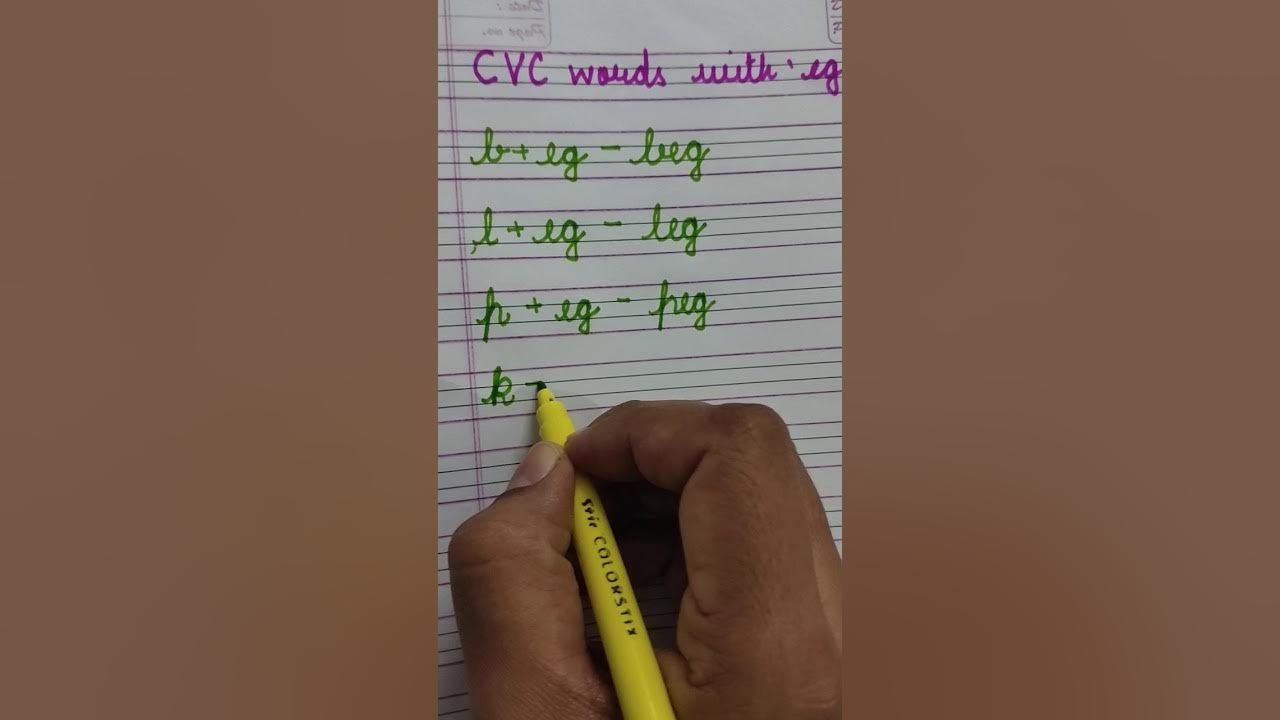 Date:
Page no.
CVC words with 'eg
b + eg - beg
l + eg - leg
p + eg - peg
k -
COLORSTIX